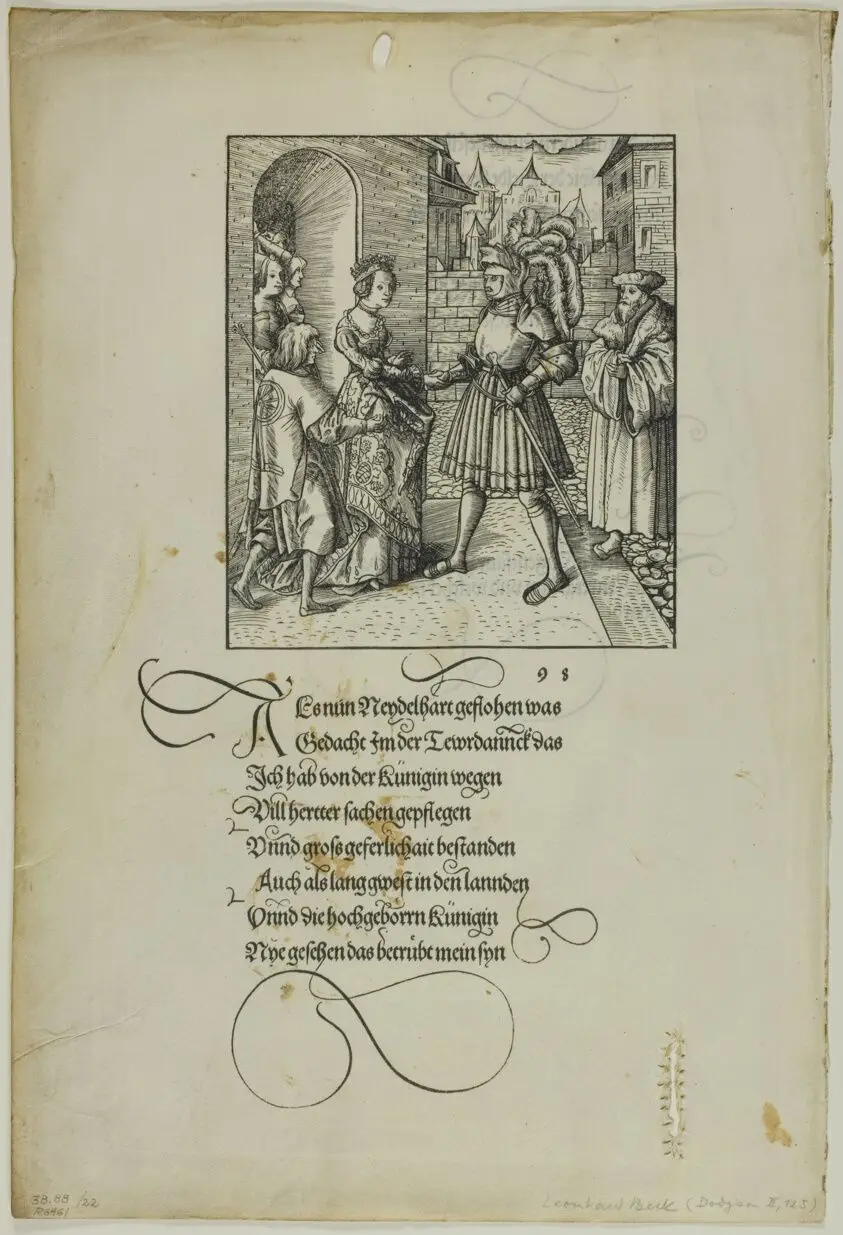 98
Als nun Neydelhart geflohen was
Gedacht Im der Tewrdannck das
Ich hab von der Künigin wegen
Vill hertter sachen gepflegen
Vnnd gross geferlichait bestanden
Auch als lang gwest in den lannden
Vnnd die hochgeborrn Künigin
Nye gesehen das betrübt mein syn
38.88 /22
R6461
Leonhard Beck (Dodgson II, 125)